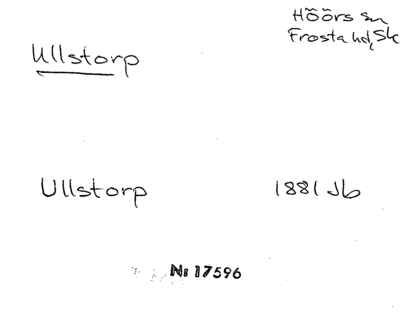 Höörs sn
Frosta hd, Sk
Ullstorp
Ullstorp 1881 Jb
Nr 17596